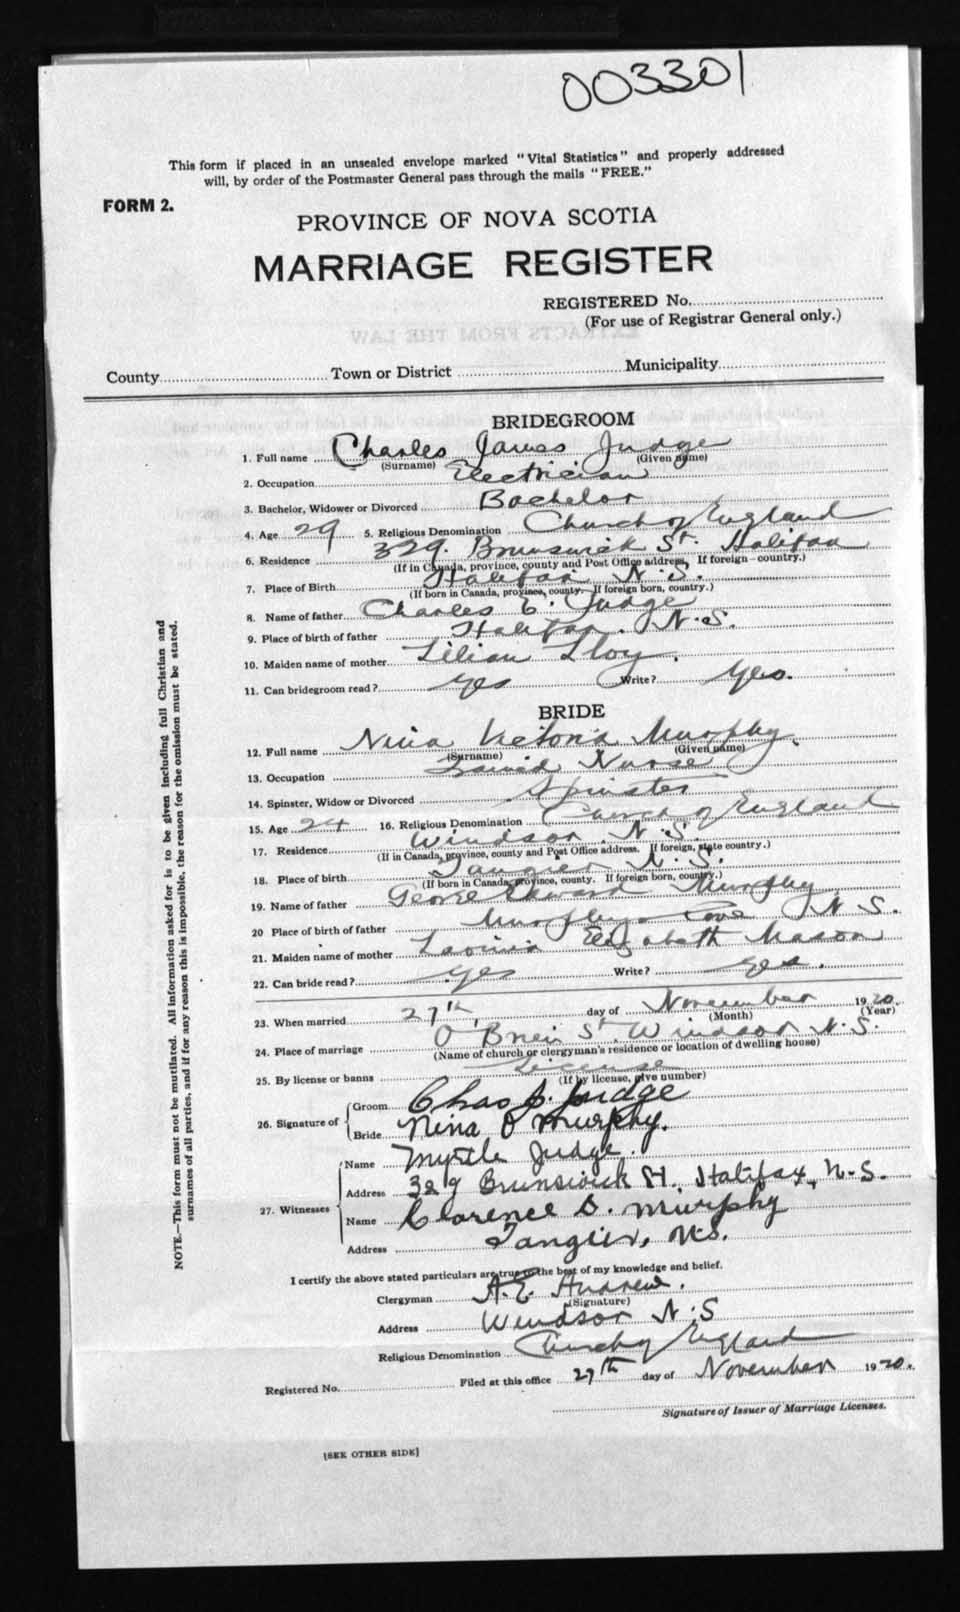 003301
This form if placed in an unsealed envelope marked "Vital Statistics" and properly addressed
will, by order of the Postmaster General pass through the mails "FREE."
FORM 2.
PROVINCE OF NOVA SCOTIA
MARRIAGE REGISTER
REGISTERED No.
(For use of Registrar General only.)
County Town or District Municipality
BRIDEGROOM
1. Full name Charles James Judge
(Surname) (Given name)
2. Occupation Electrician
3. Bachelor, Widower or Divorced Bachelor
4. Age 29 5. Religious Denomination Church of England
6. Residence 329. Brunswick St. Halifax
(If in Canada, province, county and Post Office address, If foreign—country.)
7. Place of Birth Halifax N.S.
(If born in Canada, province, county. If foreign born, country.)
8. Name of father Charles E. Judge
9. Place of birth of father Halifax. N.S.
10. Maiden name of mother Lilian Lloy.
11. Can bridegroom read? Yes Write? Yes.
BRIDE
12. Full name Nina Victoria Murphy.
(Surname) (Given name)
13. Occupation Nurse
14. Spinster, Widow or Divorced Spinster
15. Age 24 16. Religious Denomination Church of England
17. Residence Windsor. N.S.
(If in Canada, province, county and Post Office address. If foreign, state country.)
18. Place of birth Tangier N.S.
(If born in Canada, province, county. If foreign born, country.)
19. Name of father George Edward Murphy
20 Place of birth of father Murphy Cove N.S.
21. Maiden name of mother Lavinia Elizabeth Mason
22. Can bride read? Yes Write? yes.
23. When married 27th, day of November 1920.
(Month) (Year)
24. Place of marriage O'Brien St. Windsor N.S.
(Name of church or clergyman's residence or location of dwelling house)
25. By license or banns License
(If by license, give number)
26. Signature of Groom Chas J. Judge
Bride Nina V Murphy.
27. Witnesses Name Myrtle Judge.
Address 329 Brunswick St. Halifax, N.S.
Name Clarence D. Murphy
Address Tangier, N.S.
I certify the above stated particulars are true to the best of my knowledge and belief.
Clergyman A.E. Andrew.
(Signature)
Address Windsor N.S
Religious Denomination Church of England
Registered No. Filed at this office 27th day of November 1920.
Signature of Issuer of Marriage Licenses.
[SEE OTHER SIDE]
NOTE.—This form must not be mutilated. All information asked for is to be given including full Christian and
surnames of all parties, and if for any reason this is impossible, the reason for the omission must be stated.
EXTRACTS FROM THE LAW